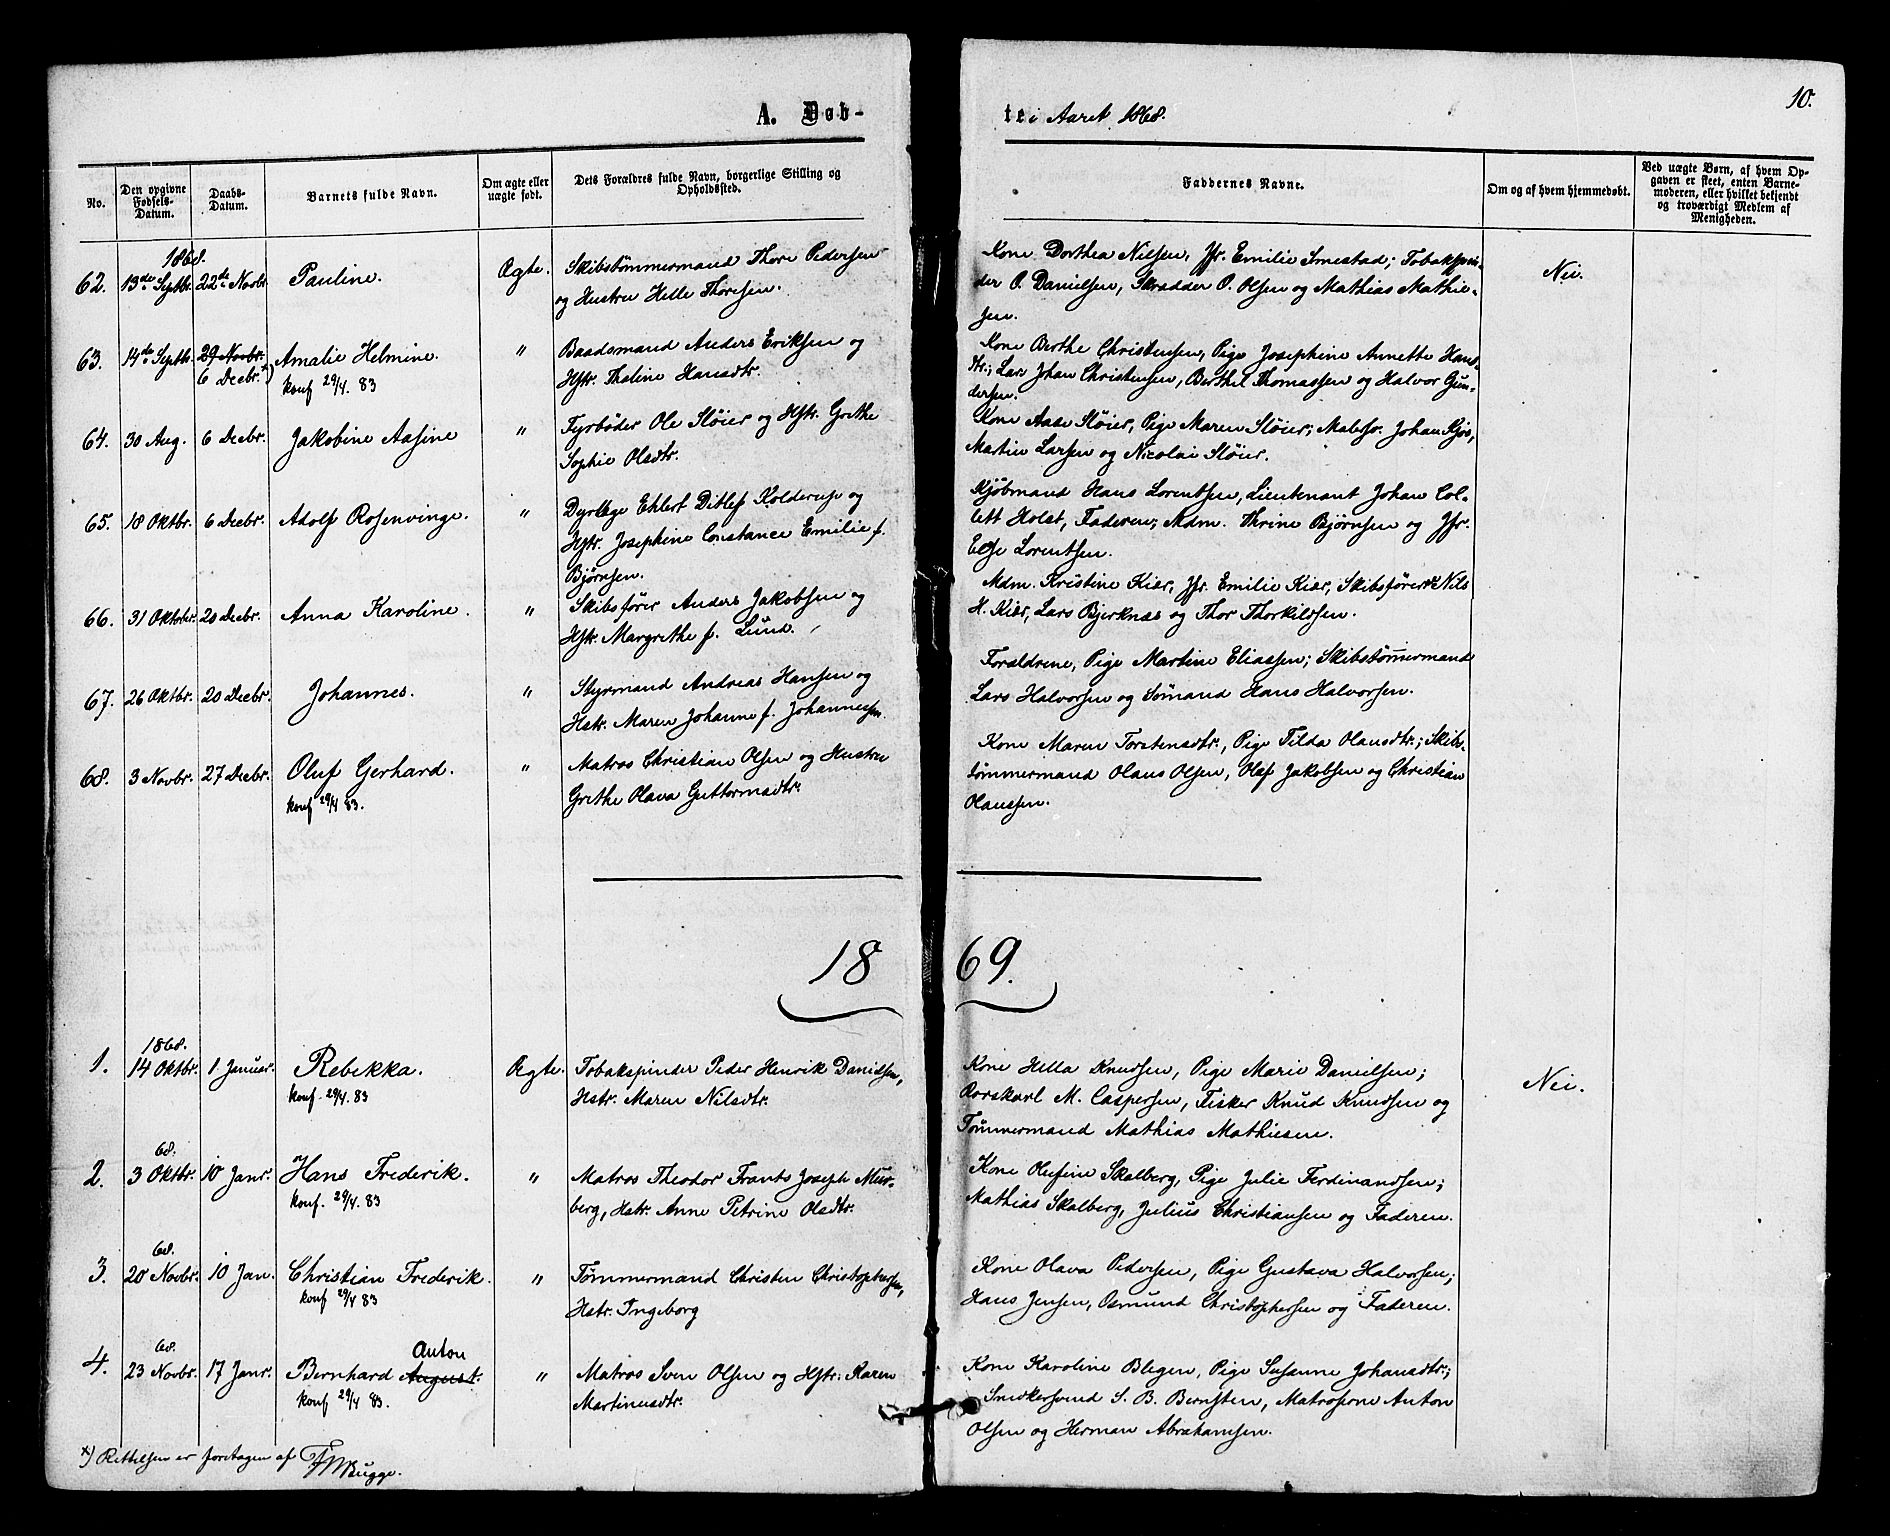 A. Døb-
te i Aaret 1868.
10.
No.
Den opgivne Fødsels-Datum.
Daabs-Datum.
Barnets fulde Navn.
Om ægte eller uægte født.
Dets Forældres fulde Navn, borgerlige Stilling og Opholdssted.
Faddernes Navne.
Om og af hvem hjemmedøbt.
Ved uægte Børn, af hvem Opgaven er skeet, enten Barnemoderen, eller hvilket bekjendt og troværdigt Medlem af Menigheden.
1868.
62. 13de Septbr. 22de Novbr. Pauline. Ægte. Skibstømmermand Thore Pedersen
og Hustru Helle Thoresen.
Kone Dorthea Nilsen, Jfr. Emilie Smestad; Tobakspin-
der O. Danielsen, Skrædder O. Olsen og Mathias Mathie-
sen.
Nei.
63. 14de Septb. 29 Novbr. Amalie Helmine. " Baadsmand Anders Eriksen og
6 Decbr. *)
konf 29/4 83
Hstr. Thaline Hansdtr.
Kone Berthe Christensen, Pige Josephine Annette Hans-
dtr.; Lars Johan Christensen, Berthel Thomassen og Halvor Gun-
dersen.
64. 30 Aug. 6 Decbr. Jakobine Aasine " Fyrbøder Ole Sløier og Hstr. Grethe
Sophie Olsdtr.
Kone Aase Sløier, Pige Maren Sløier; Matrso. Johan Gjøs,
Martin Larsen og Nicolai Sløier.
65. 18 Oktbr. 6 Decbr. Adolf Rosenvinge. " Dyrlæge Ehlert Ditlef Kolderup og
Hstr. Josephine Constance Emilie f.
Bjørnsen.
Kjøbmand Hans Lorentsen, Lieutenant Johan Col-
lett Holst, Faderen; Mdm. Thrine Bjørnsen og Jfr.
Else Lorentsen.
66. 31 Oktober. 20 Decbr. Anna Karoline. " Skibsfører Anders Jakobsen og
Hstr. Margrethe f. Lund.
Mdm. Kristine Kiær, Jfr. Emilie Kiær, Skibsfører Nils
H. Kiær, Lars Bjerknæs og Thor Thorkildsen.
67. 26 Oktbr. 20 Decbr. Johannes. " Styrmand Andreas Hansen og
Hstr. Maren Johanne f. Johannessen.
Forældrene, Pige Martine Eliassen; Skibstømmermand
Lars Halvorsen og Sømand Hans Halvorsen.
68. 3 Novbr. 27 Decbr. Oluf Gerhard. " Matros Christian Olsen og Hustru
konf 29/4 83.
Grethe Olava Guttormsdtr.
Kone Maren Torstensdtr., Pige Tilda Olausdtr.; Skibs-
tømmermand Olaus Olsen, Olaf Jakobsen og Christian
Olaussen.
1869.
1868.
1. 14 Oktbr. 1 Januar. Rebekka. Ægte. Tobakspinder Peder Henrik Danielsen,
konf. 29/4. 83
Hstr. Maren Nilsdtr.
Kone Hella Knudsen, Pige Marie Danielsen;
Rorskarl M. Caspersen, Fisker Knud Knudsen og
Tømmermand Mathias Mathiesen.
Nei.
68.
2. 3 Oktbr. 10 Janr. Hans Frederik. " Matros Theodor Frants Joseph Mur-
konf. 29/4. 83
berg, Hstr. Anne Petrine Olsdtr.
Kone Olufine Skalberg, Pige Julie Ferdinandsen;
Mathias Skalberg, Julius Christiansen og Faderen.
68.
3. 20 Novbr. 10 Jan. Christian Frederik. " Tømmermand Christen Christophersen,
konf 29/4 83
Hstr. Ingeborg
Kone Olava Pedersen, Pige Gustava Halvorsen;
Hans Jensen, Osmund Christophersen og Faderen.
68.
Anton
4. 23 Novbr. 17 Janr. Bernhard August. " Matros Sven Olsen og Hstr. Karen
konf 29/4 83.
Martinusdtr.
Kone Karoline Blegen, Pige Susanne Johansdtr.;
Snedkersvend S. B. Bernsten, Matroserne Anton
Olsen og Herman Abrahamsen.
*) Rettelsen er foretagen af FMBugge.